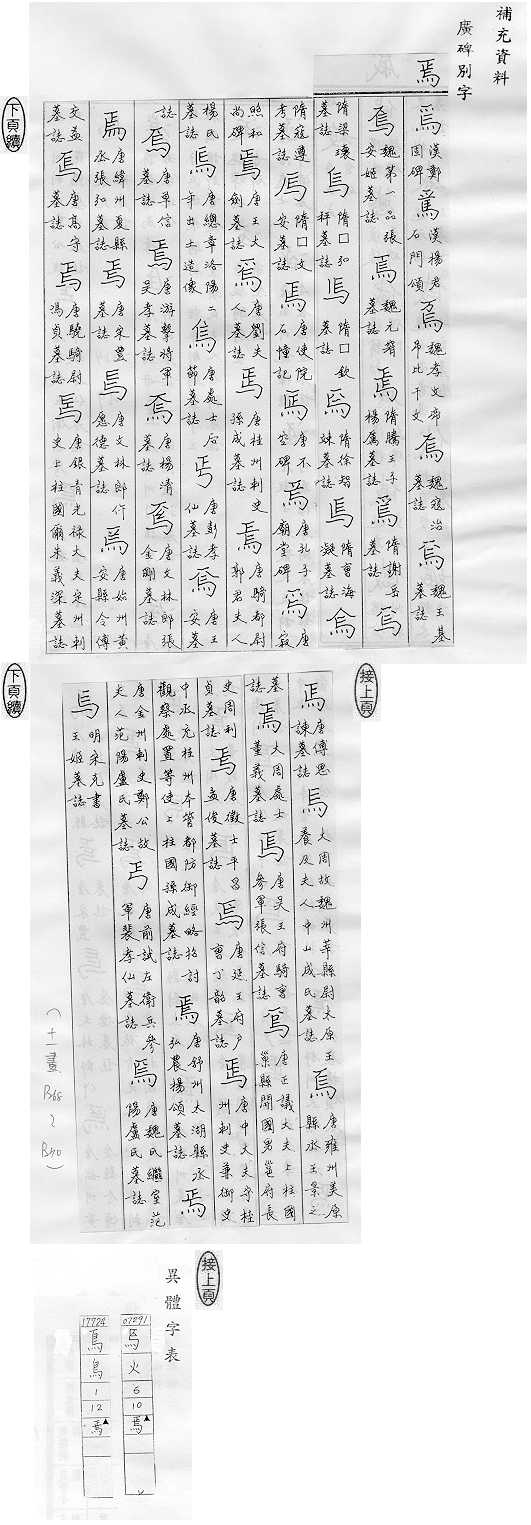 補充資料
廣碑別字
焉
焉 漢鄭固碑 焉 漢楊君石門頌 焉 魏孝文帝弔比干文 焉 魏寇治墓誌 焉 魏王基墓誌
焉 魏第一品張安姬墓誌 焉 魏元 墓誌 焉 隋騰王子楊厲墓誌 焉 隋謝岳墓誌 焉
隋梁瓌墓誌 焉 隋囗弘秤墓誌 焉 隋囗欽墓誌 焉 隋徐智竦墓誌 焉 隋曹海凝墓誌 焉
隋寇遵考墓誌 焉 隋囗文安墓誌 焉 唐使院石幢記 焉 唐不空碑 焉 唐孔子廟堂碑 焉 唐寂
照和尚碑 焉 唐王大劍墓誌 焉 唐劉夫人墓誌 焉 唐桂州刺史孫成墓誌 焉 唐騎都尉郭君夫人
楊氏墓誌 焉 唐總章洛陽二年出土造像 焉 唐處士 節墓誌 焉 唐彭孝仙墓誌 焉 唐王安墓
誌 焉 唐卑信墓誌 焉 唐游擊將軍吳孝墓誌 焉 唐楊清墓誌 焉 唐文林郎張金剛墓誌
焉 唐絳州夏縣丞張弘墓誌 焉 唐宋置墓誌 焉 唐文林郎仵愿德墓誌 焉 唐始州黃安縣令傅
文益墓誌 焉 唐高守墓誌 焉 唐驍騎尉馮貞墓誌 焉 唐銀青光祿大夫定州刺史上柱國爾朱義深墓誌
下頁續
接上頁
焉 唐傅思諫墓誌 焉 大周故魏州莘縣尉太原王養及夫人中山成氏墓誌 焉 唐雍州美原縣丞王景之
墓誌 焉 大周處士董義墓誌 焉 唐吳王府騎曹參軍張信墓誌 焉 唐正議大夫上柱國巢縣開國男邕府長
史周利貞墓誌 焉 唐徵士平昌孟俊墓誌 焉 唐延王府戶曹丁韶墓誌 焉 唐中大夫守桂州刺史兼御史
中丞充桂州本管都防御經略招討觀察處置等使上柱國孫成墓誌 焉 唐舒州太湖縣丞弘農楊頌墓誌 焉
唐金州刺史鄭公故夫人范陽盧氏墓誌 焉 唐前試左衛兵參軍裴孝仙墓誌 焉 唐魏氏繼室范陽盧氏墓誌
焉 明宋充書王姬墓誌
(十一畫 P168 ~ P170)
下頁續
接上頁
異體字表
07291 焉 火 6 10 焉▲
17724 焉 鳥 1 12 焉▲